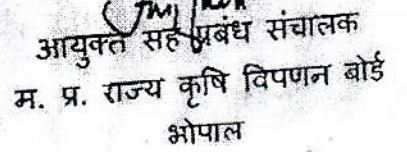 आयुक्त सह प्रबंध संचालक
म. प्र. राज्य कृषि विपणन बोर्ड
भोपाल